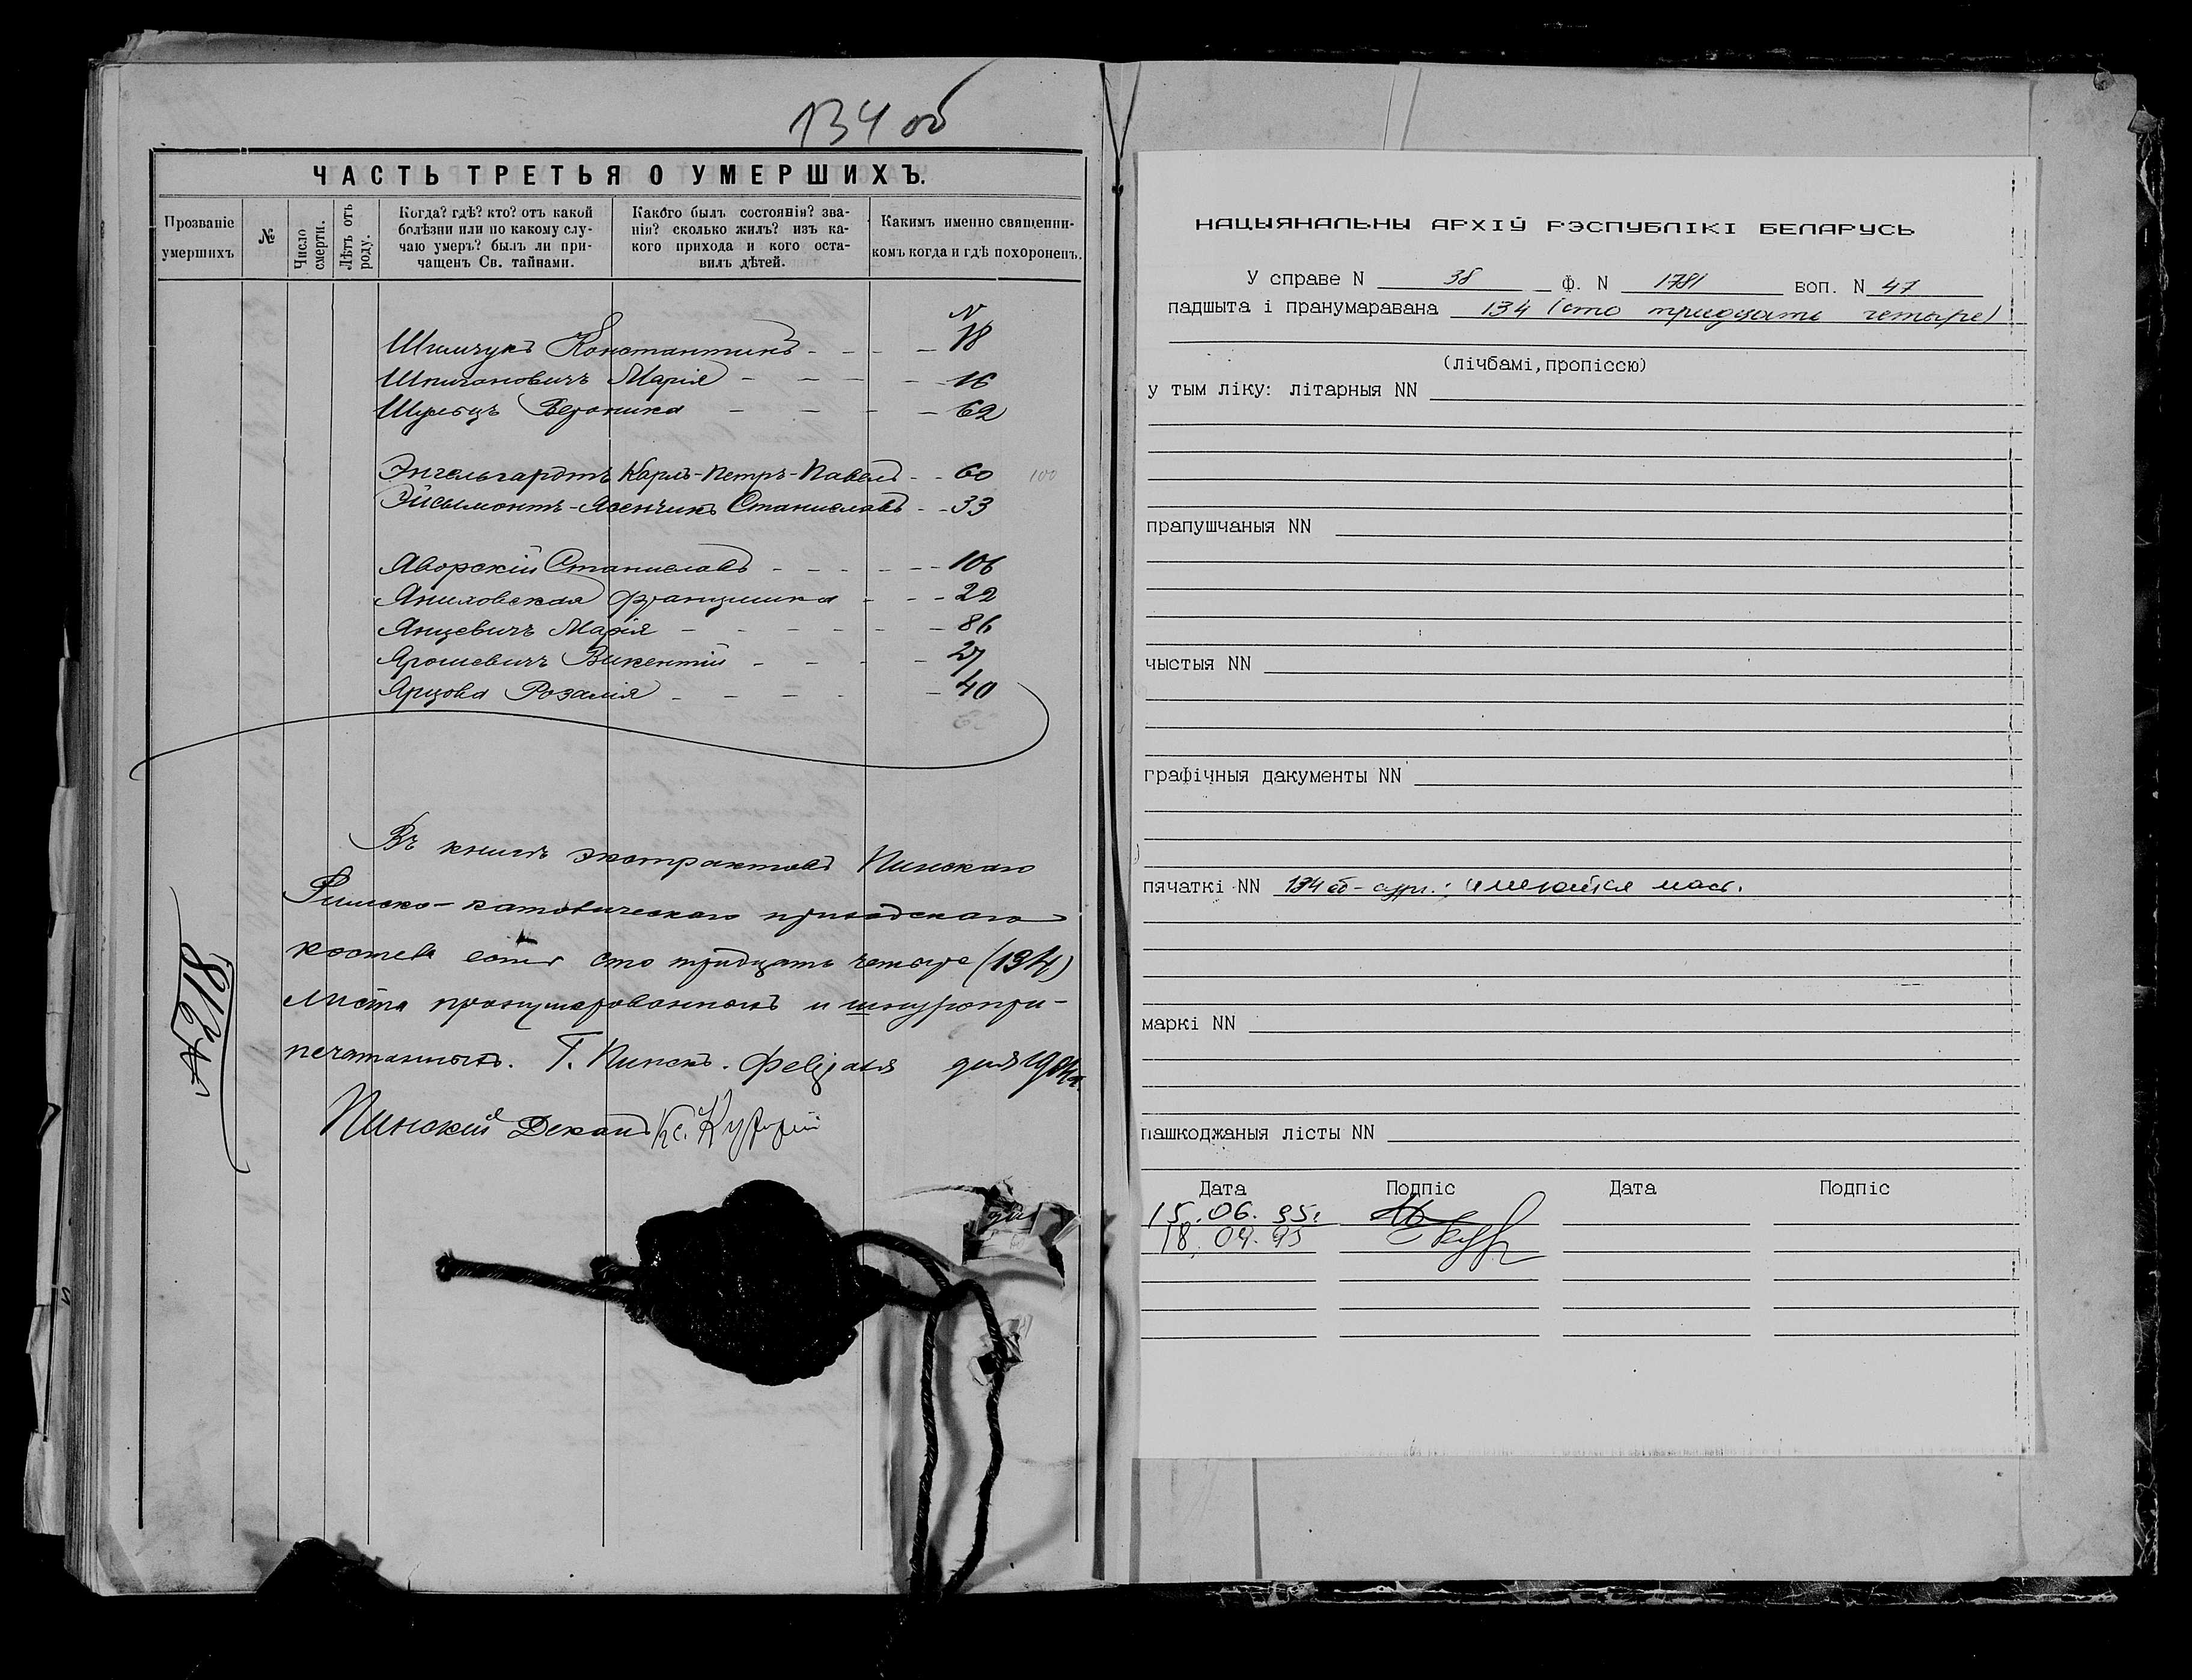 134 об
ЧАСТЬ ТРЕТЬЯ О УМЕРШИХЪ.
Прозваніе умершихъ
№
Число смерти.
Лѣтъ отъ роду.
Когда? гдѣ? кто? отъ какой
болѣзни или по какому слу-
чаю умеръ? былъ ли при-
чащенъ Св. тайнами.
Какого былъ состоянія? зва-
нія? сколько жилъ? изъ ка-
кого прихода и кого оста-
вилъ дѣтей.
Какимъ именно священни-
комъ когда и гдѣ похороненъ.
N
Шимчукъ Константинъ - - - 18
Шпигановичъ Марія - - - - 16
Шульцъ Вероника - - - - 62
Энгельгардтъ Карлъ-Петръ-Павелъ - - 60 100
Эйсымонтъ-Ясенчикъ Станиславъ - - 33
Яворскій Станиславъ - - - - - 106
Яниховская Францишка - - - 22
Янцевичъ Марія - - - - - - 86
Ярошевичъ Викентій - - - - 27
Ярцова Розалія - - - - - 40
Въ книгѣ экстрактовъ Пинскаго
Римско-католическаго приходскаго
костела сто тридцать четыре (134)
листа пронумерованныхъ и шнуропри-
печатанныхъ. Г. Пинскъ. дня
Пинскій Деканъ Кс.
№ 218
НАЦЫЯНАЛЬНЫ АРХІЎ РЭСПУБЛІКІ БЕЛАРУСЬ
У справе N 38 Ф. N 1781 воп. N 47
падшыта і пранумаравана 134 (сто тридцать четыре)
(лічбамі,пропіссю)
у тым ліку: літарныя NN
прапушчаныя NN
чыстыя NN
графічныя дакументы NN
пячаткі NN 134 об - сург.; имеются
маркі NN
пашкоджаныя лісты NN
Дата Подпіс Дата Подпіс
15.06.95г.
18.09.95